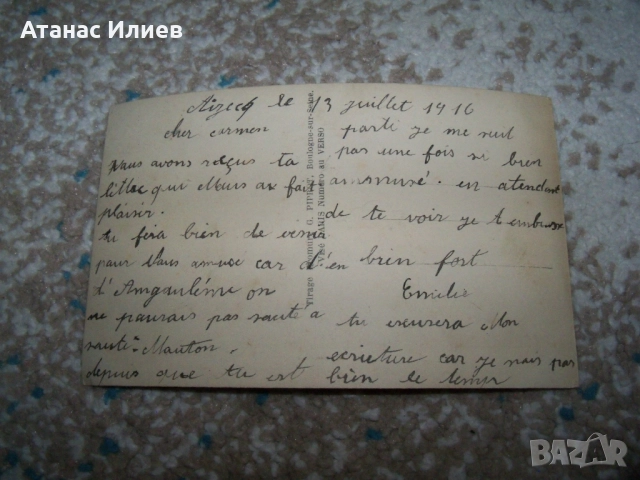 Атанас Илиев
le 13 juillet 1916
cher carmen
Nous avons reçus ta
lettre qui Nous a fait
plaisir.
tu fera bien de venir
pour Nous amuse car d'en
d'Amgouléme on
ne pourais pas saute a
saute-Mouton.
depuis que tu est
parti je me suit
pas une fois si bien
ammusé. en atendent
de te voir je t'embrasse
bien fort
Emilie
tu excusera Mon
ecriture car je nais pas
bien le temps
Tirage G. PIPROT, Boulogne-sur-Seine.
Numéro au VERSO
BAZAR